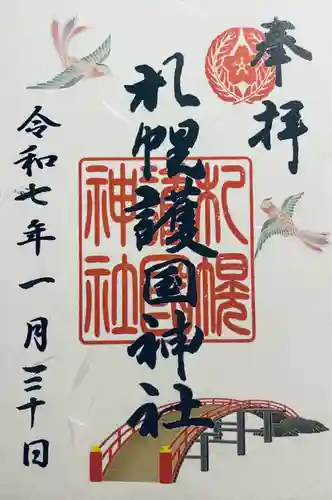 奉拝
札幌護國神社
札幌護國神社
令和七年一月三十日